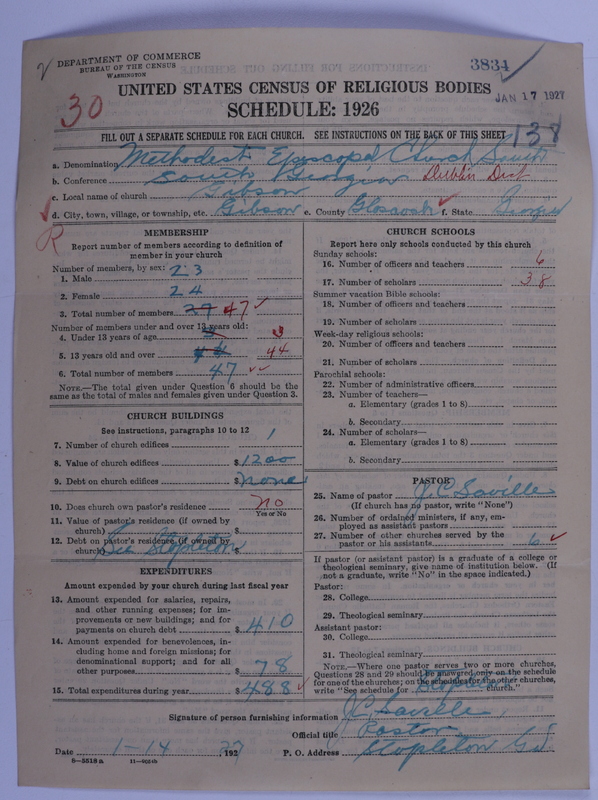 DEPARTMENT OF COMMERCE
BUREAU OF THE CENSUS
WASHINGTON
3834
UNITED STATES CENSUS OF RELIGIOUS BODIES
JAN 17 1927
30
SCHEDULE: 1926
FILL OUT A SEPARATE SCHEDULE FOR EACH CHURCH. SEE INSTRUCTIONS ON THE BACK OF THIS SHEET
138
a. Denomination Methodist Episcopal Church South
b. Conference South Georgia Dublin Dist
c. Local name of church Gibson
d. City, town, village, or township, etc. Gibson e. County Glascock f. State Georgia
R
MEMBERSHIP
Report number of members according to definition of
member in your church
Number of members, by sex:
1. Male 23
2. Female 24
3. Total number of members 47
Number of members under and over 13 years old:
4. Under 13 years of age 3
5. 13 years old and over 44
6. Total number of members 47
NOTE.—The total given under Question 6 should be the
same as the total of males and females given under Question 3.
CHURCH BUILDINGS
See instructions, paragraphs 10 to 12
7. Number of church edifices 1
8. Value of church edifices $1200
9. Debt on church edifices $none
10. Does church own pastor's residence no
Yes or No
11. Value of pastor's residence (if owned by
church) $
12. Debt on pastor's residence (if owned by
church) Stapleton
EXPENDITURES
Amount expended by your church during last fiscal year
13. Amount expended for salaries, repairs,
and other running expenses; for im-
provements or new buildings; and for
payments on church debt $410
14. Amount expended for benevolences, in-
cluding home and foreign missions; for
denominational support; and for all
other purposes $78
15. Total expenditures during year $488
CHURCH SCHOOLS
Report here only schools conducted by this church
Sunday schools:
16. Number of officers and teachers 6
17. Number of scholars 38
Summer vacation Bible schools:
18. Number of officers and teachers
19. Number of scholars
Week-day religious schools:
20. Number of officers and teachers
21. Number of scholars
Parochial schools:
22. Number of administrative officers
23. Number of teachers—
a. Elementary (grades 1 to 8)
b. Secondary
24. Number of scholars—
a. Elementary (grades 1 to 8)
b. Secondary
PASTOR
25. Name of pastor J. C. Saville
(If church has no pastor, write "None")
26. Number of ordained ministers, if any, em-
ployed as assistant pastors
27. Number of other churches served by the
pastor or his assistants 6
If pastor (or assistant pastor) is a graduate of a college or
theological seminary, give name of institution below. (If
not a graduate, write "No" in the space indicated.)
Pastor:
28. College
29. Theological seminary
Assistant pastor:
30. College
31. Theological seminary
NOTE.—Where one pastor serves two or more churches,
Questions 28 and 29 should be answered only on the schedule
for one of the churches; on the schedules for the other churches,
write "See schedule for Stapleton church."
Signature of person furnishing information J. C. Saville
Official title Pastor
Date 1-14 1927 P. O. Address Stapleton Ga.
8—5518 a 11—9054b